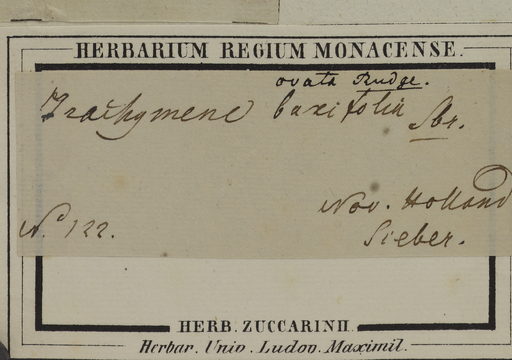 HERBARIUM REGIUM MONACENSE.
ovata Rudge.
Trachymene buxifolia Sbr.
Nov. Holland
No 122.
Sieber.
HERB. ZUCCARINII.
Herbar. Univ. Ludov. Maximil.